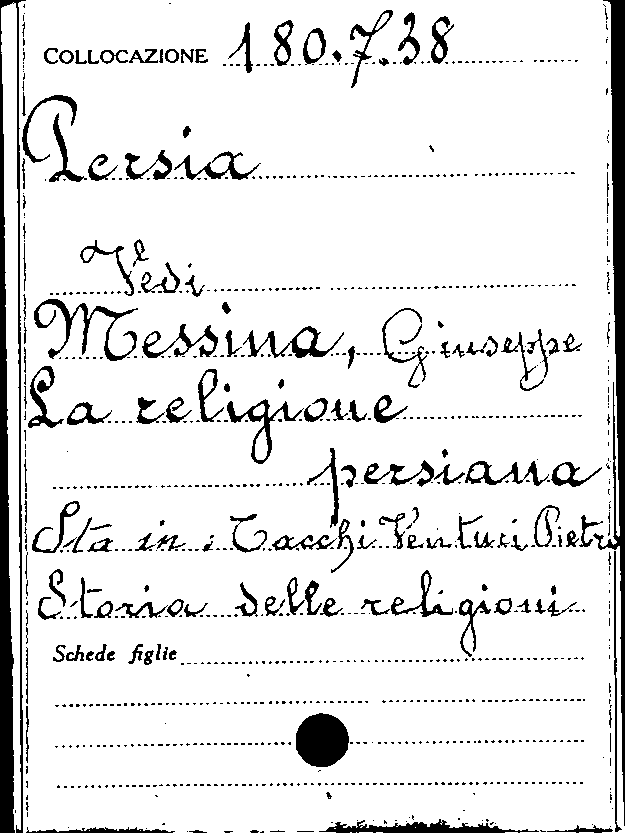 COLLOCAZIONE 180.7.38
Persia
Vedi
Messina, Giuseppe
La religione
persiana
Sta in: Tacchi Venturi Pietro
Storia delle religioni
Schede figlie